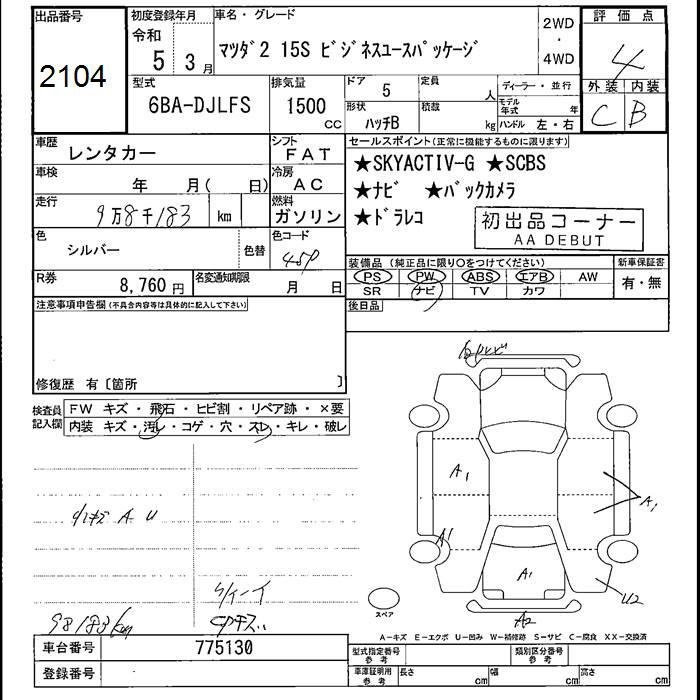 出品番号
2104
初度登録年月
令和
5 3月
車名・グレード
マツダ2 15S ビジネスユースパッケージ
2WD
・
4WD
評価点
4
外装 内装
C B
型式
6BA-DJLFS
排気量
1500
cc
ドア 5
形状
ハッチB
定員
人
積載
kg
ディーラー・並行
モデル年式 年
ハンドル 左・右
車歴
レンタカー
シフト
FAT
車検
年 月( 日)
冷房
AC
走行
9万8千183 km
燃料
ガソリン
色
シルバー
色替
色コード
45P
R券
8,760 円
名変通知期限
月 日
セールスポイント(正常に機能するものに限ります)
★SKYACTIV-G ★SCBS
★ナビ ★バックカメラ
★ドラレコ
初出品コーナー
AA DEBUT
装備品 (純正品に限り○をつけてください)
PS PW ABS エアB AW
SR ナビ TV カワ
新車保証書
有・無
後日品
注意事項申告欄(不具合内容等は具体的に記入して下さい)
修復歴 有〔箇所 〕
検査員
記入欄
FW キズ・飛石・ヒビ割・リペア跡・×要
内装 キズ・汚レ・コゲ・穴・スレ・キレ・破レ
A U
98183km
A1
A1
A1
A1
U2
A2
スペア
A-キズ E-エクボ U-凹み W-補修跡 S-サビ C-腐食 XX-交換済
車台番号
775130
登録番号
型式指定番号
参考
類別区分番号
参考
車庫証明用
参考
長さ cm
幅 cm
高さ cm